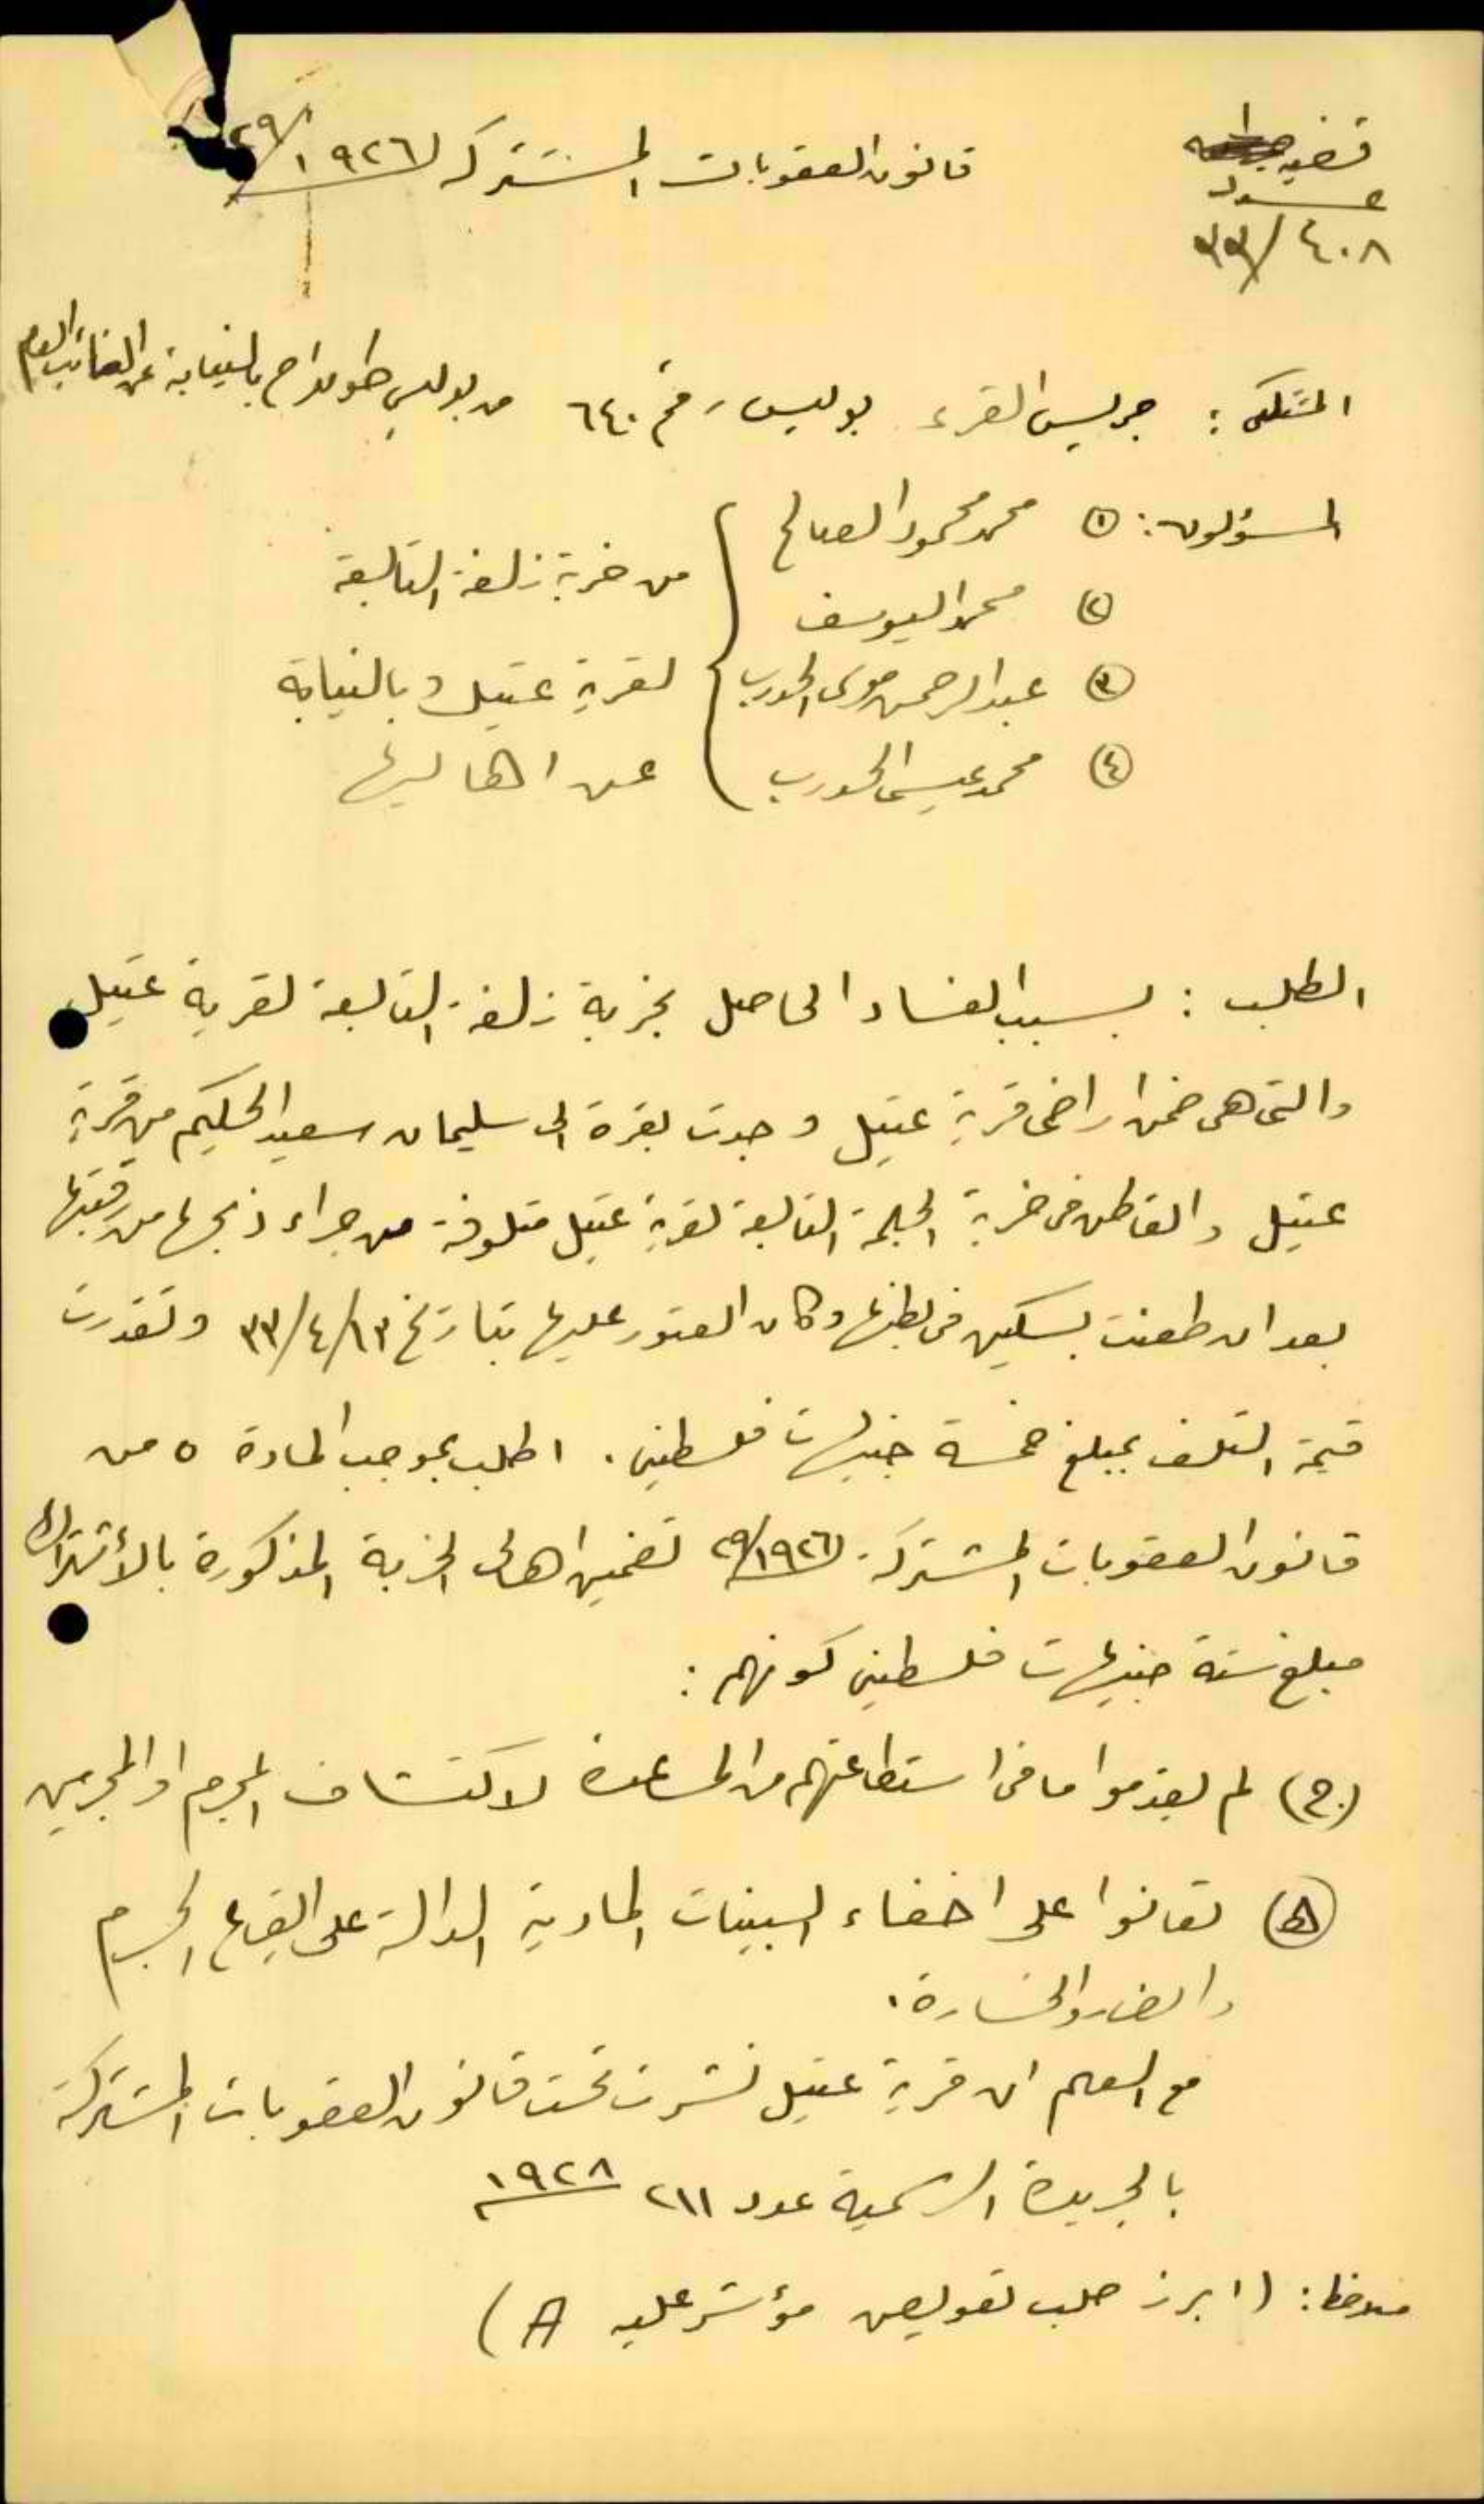 قضيه
عدد
٤٠٨/٣٣
قانون العقوبات المشتركه ١٩٢٦/٢٩
المشتكى: جريس القرء بوليس رقم ٦٤٠ من بوليس طولكرم بالنيابة عن النائب العام
المسؤولون: ١ محمد محمود الصالح
٢ محمد اليوسف
٣ عبد الرحمن موسى الحورب
٤ محمد عيسى الحورب
من خربة زلفة التابعة
لقرية عتيل وبالنيابة
عن اهاليها
الطلب: بسبب الفساد الحاصل بخربة زلفة التابعة لقرية عتيل
والتى هى ضمن اراضى قرية عتيل وجدت بقرة الى سليمان سعيد الحكيم من قرية
عتيل والقاطن فى خربة الجلمة التابعة لقرية عتيل متلوفة من جراء ذبحها من رقبتها
بعد ان طعنت بسكين فى بطنها وكان العثور عليها بتاريخ ١٣/٤/٣٣ وتقدرت
قيمة التلف بمبلغ خمسة جنيهات فلسطينى. اطلب بموجب المادة ٥ من
قانون العقوبات المشتركة ٢٩/١٩٢٦ تضمين اهالى الخربة المذكورة بالأشتراك
مبلغ ستة جنيهات فلسطينى كونهم:
(ج) لم يقدموا ما فى استطاعتهم من المساعدة لاكتشاف المجرم او المجرمين
(ه) تعانوا على اخفاء البينات المادية الدالة على ايقاع الجرم
والضرر والخسارة.
مع العلم ان قرية عتيل نشرت تحت قانون العقوبات المشتركة
بالجريدة الرسمية عدد ٢١١ ١٩٢٨
ملاحظه: (ابرز طلب تعويض مؤشر عليه A)